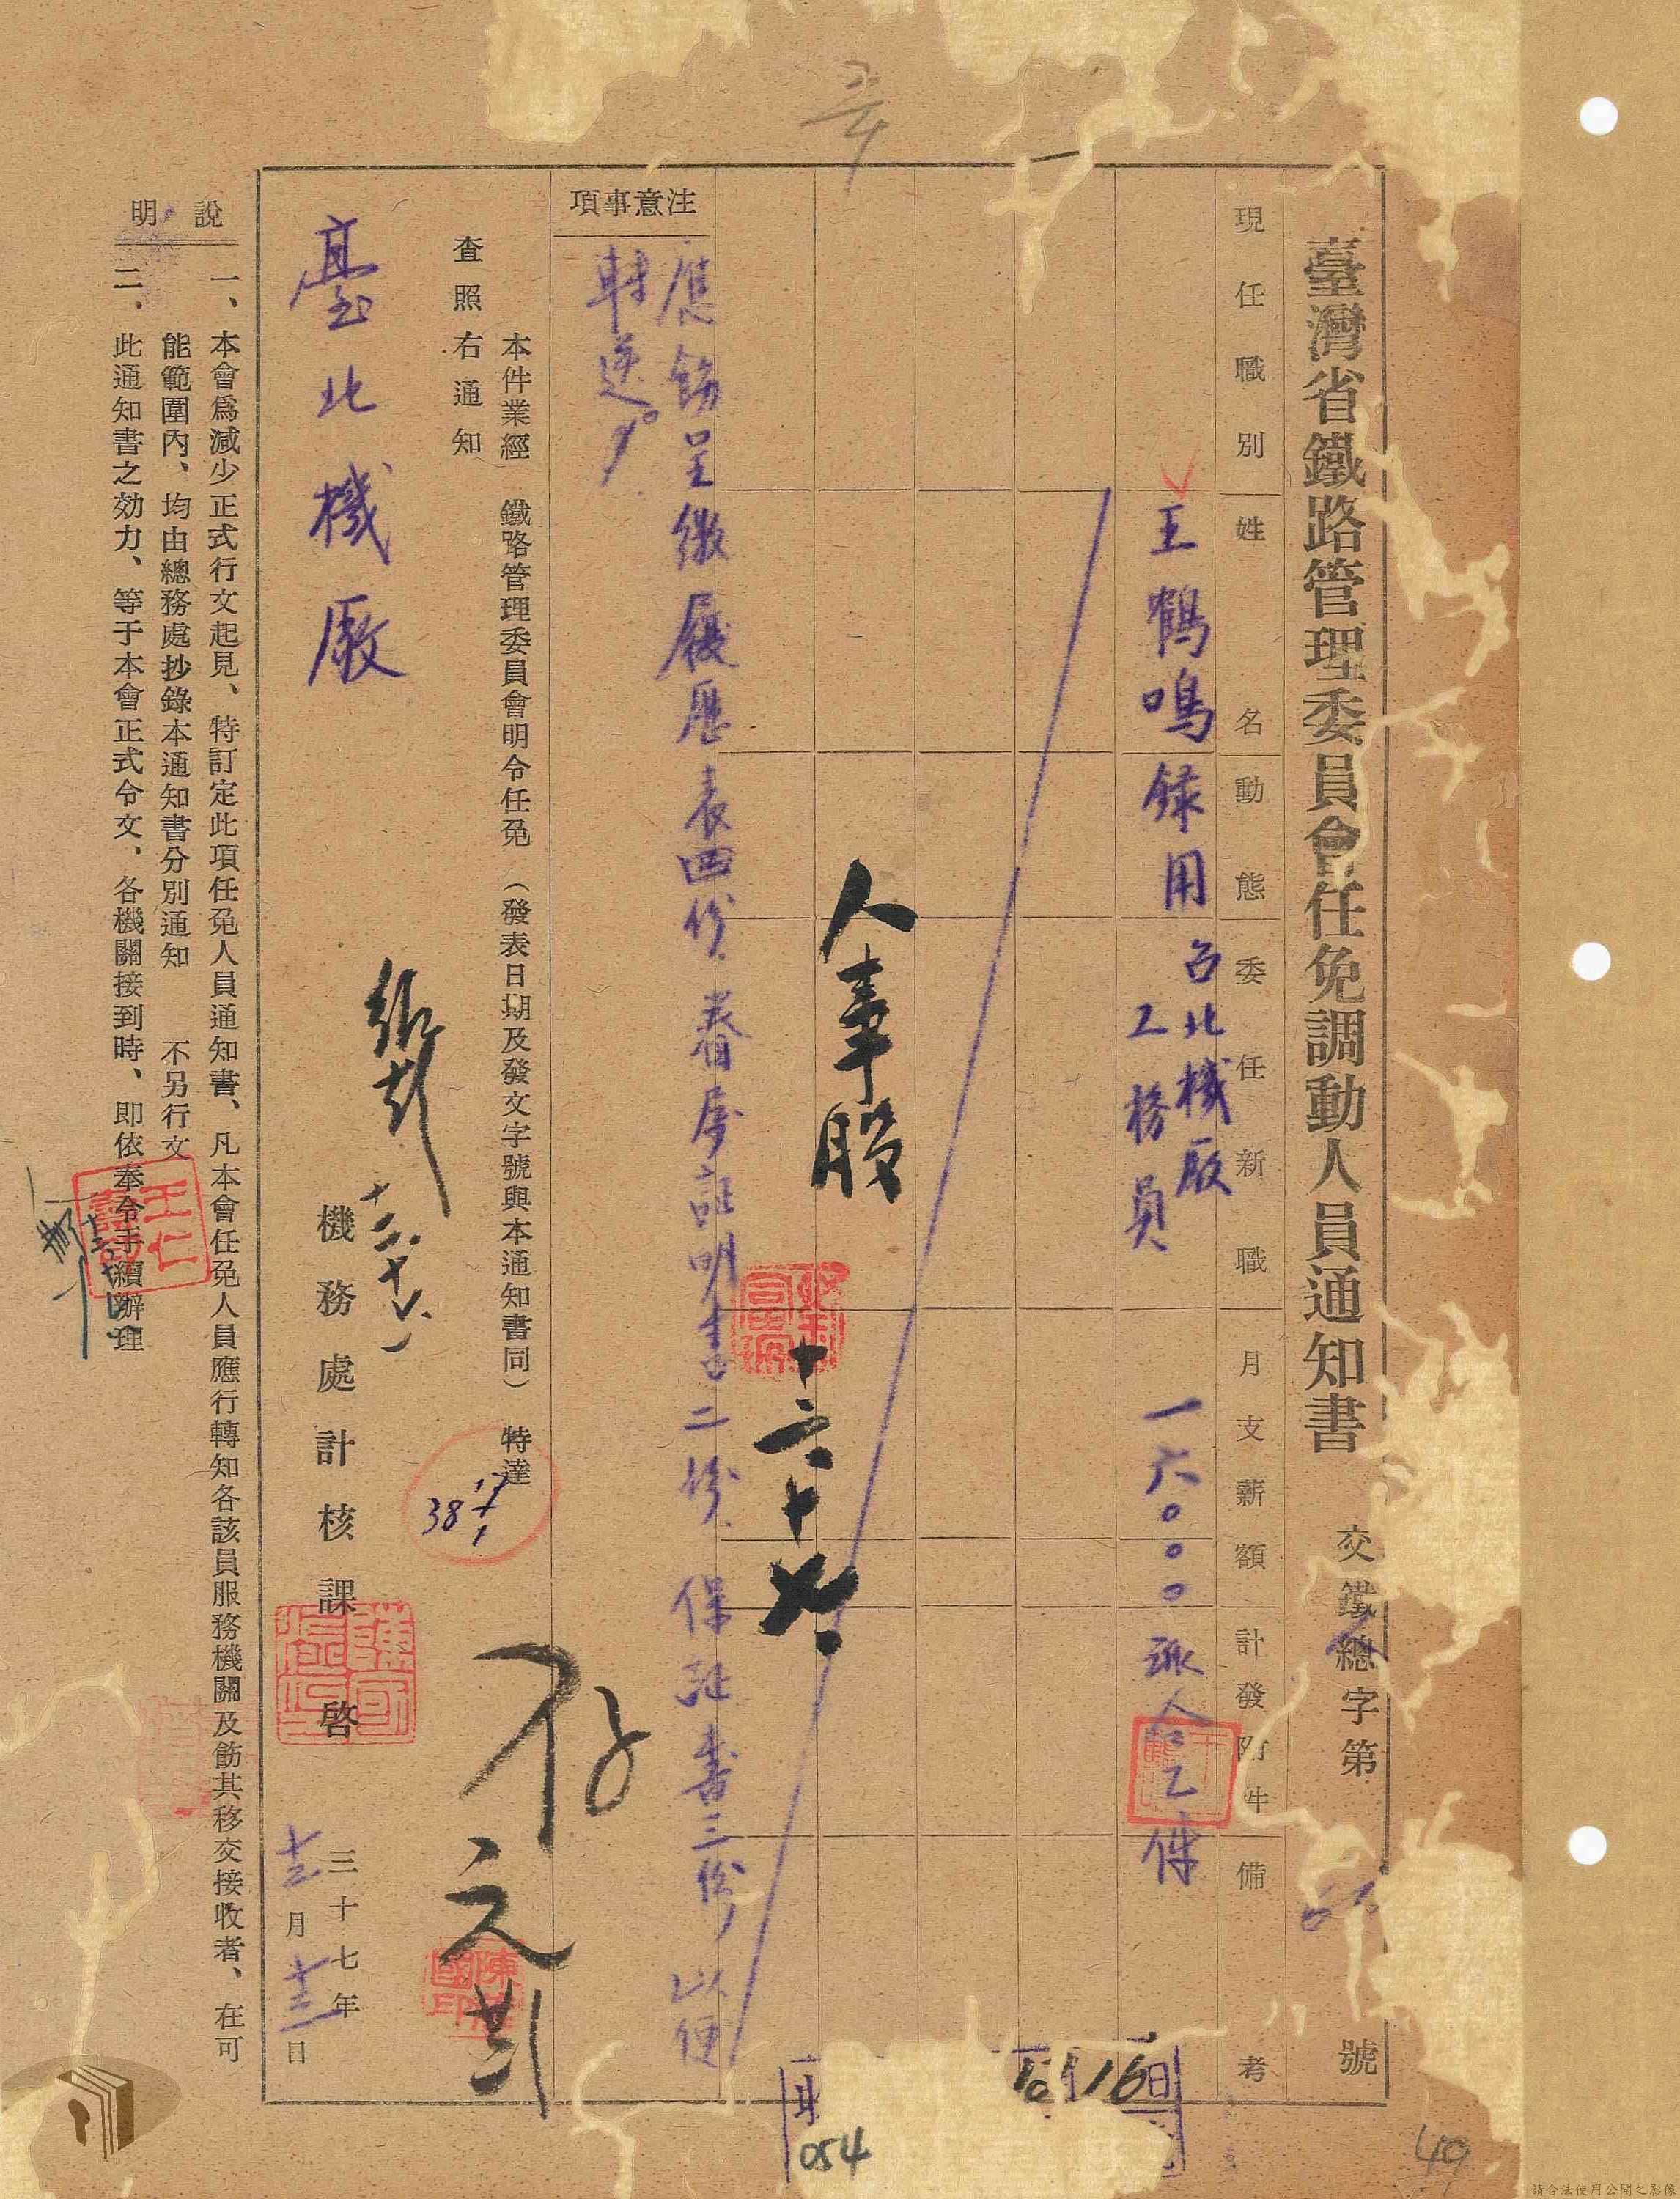 臺灣省鐵路管理委員會任免調動人員通知書
交鐵總字第
號
現任職別
姓名
動態
委任新職
月支薪額
計發附件
備考
王鶴鳴
錄用
台北機厰
工務員
一六〇〇〇
派令乙件
人事股
注意事項
應飭呈繳履歷表四份眷屬証明書二份保証書三份以便
轉送
本件業經 鐵路管理委員會明令任免 (發表日期及發文字號與本通知書同) 特達
查照右通知
臺北機厰
機務處計核課啓
三十七年
十二月十三日
存
38
說明
一、本會爲減少正式行文起見、特訂定此項任免人員通知書、凡本會任免人員應行轉知各該員服務機關及飭其移交接收者、在可
能範圍內、均由總務處抄錄本通知書分別通知 不另行文
二、此通知書之効力、等于本會正式令文、各機關接到時、即依奉令手續辦理
王仁
16
054
49
請合法使用公開之影像